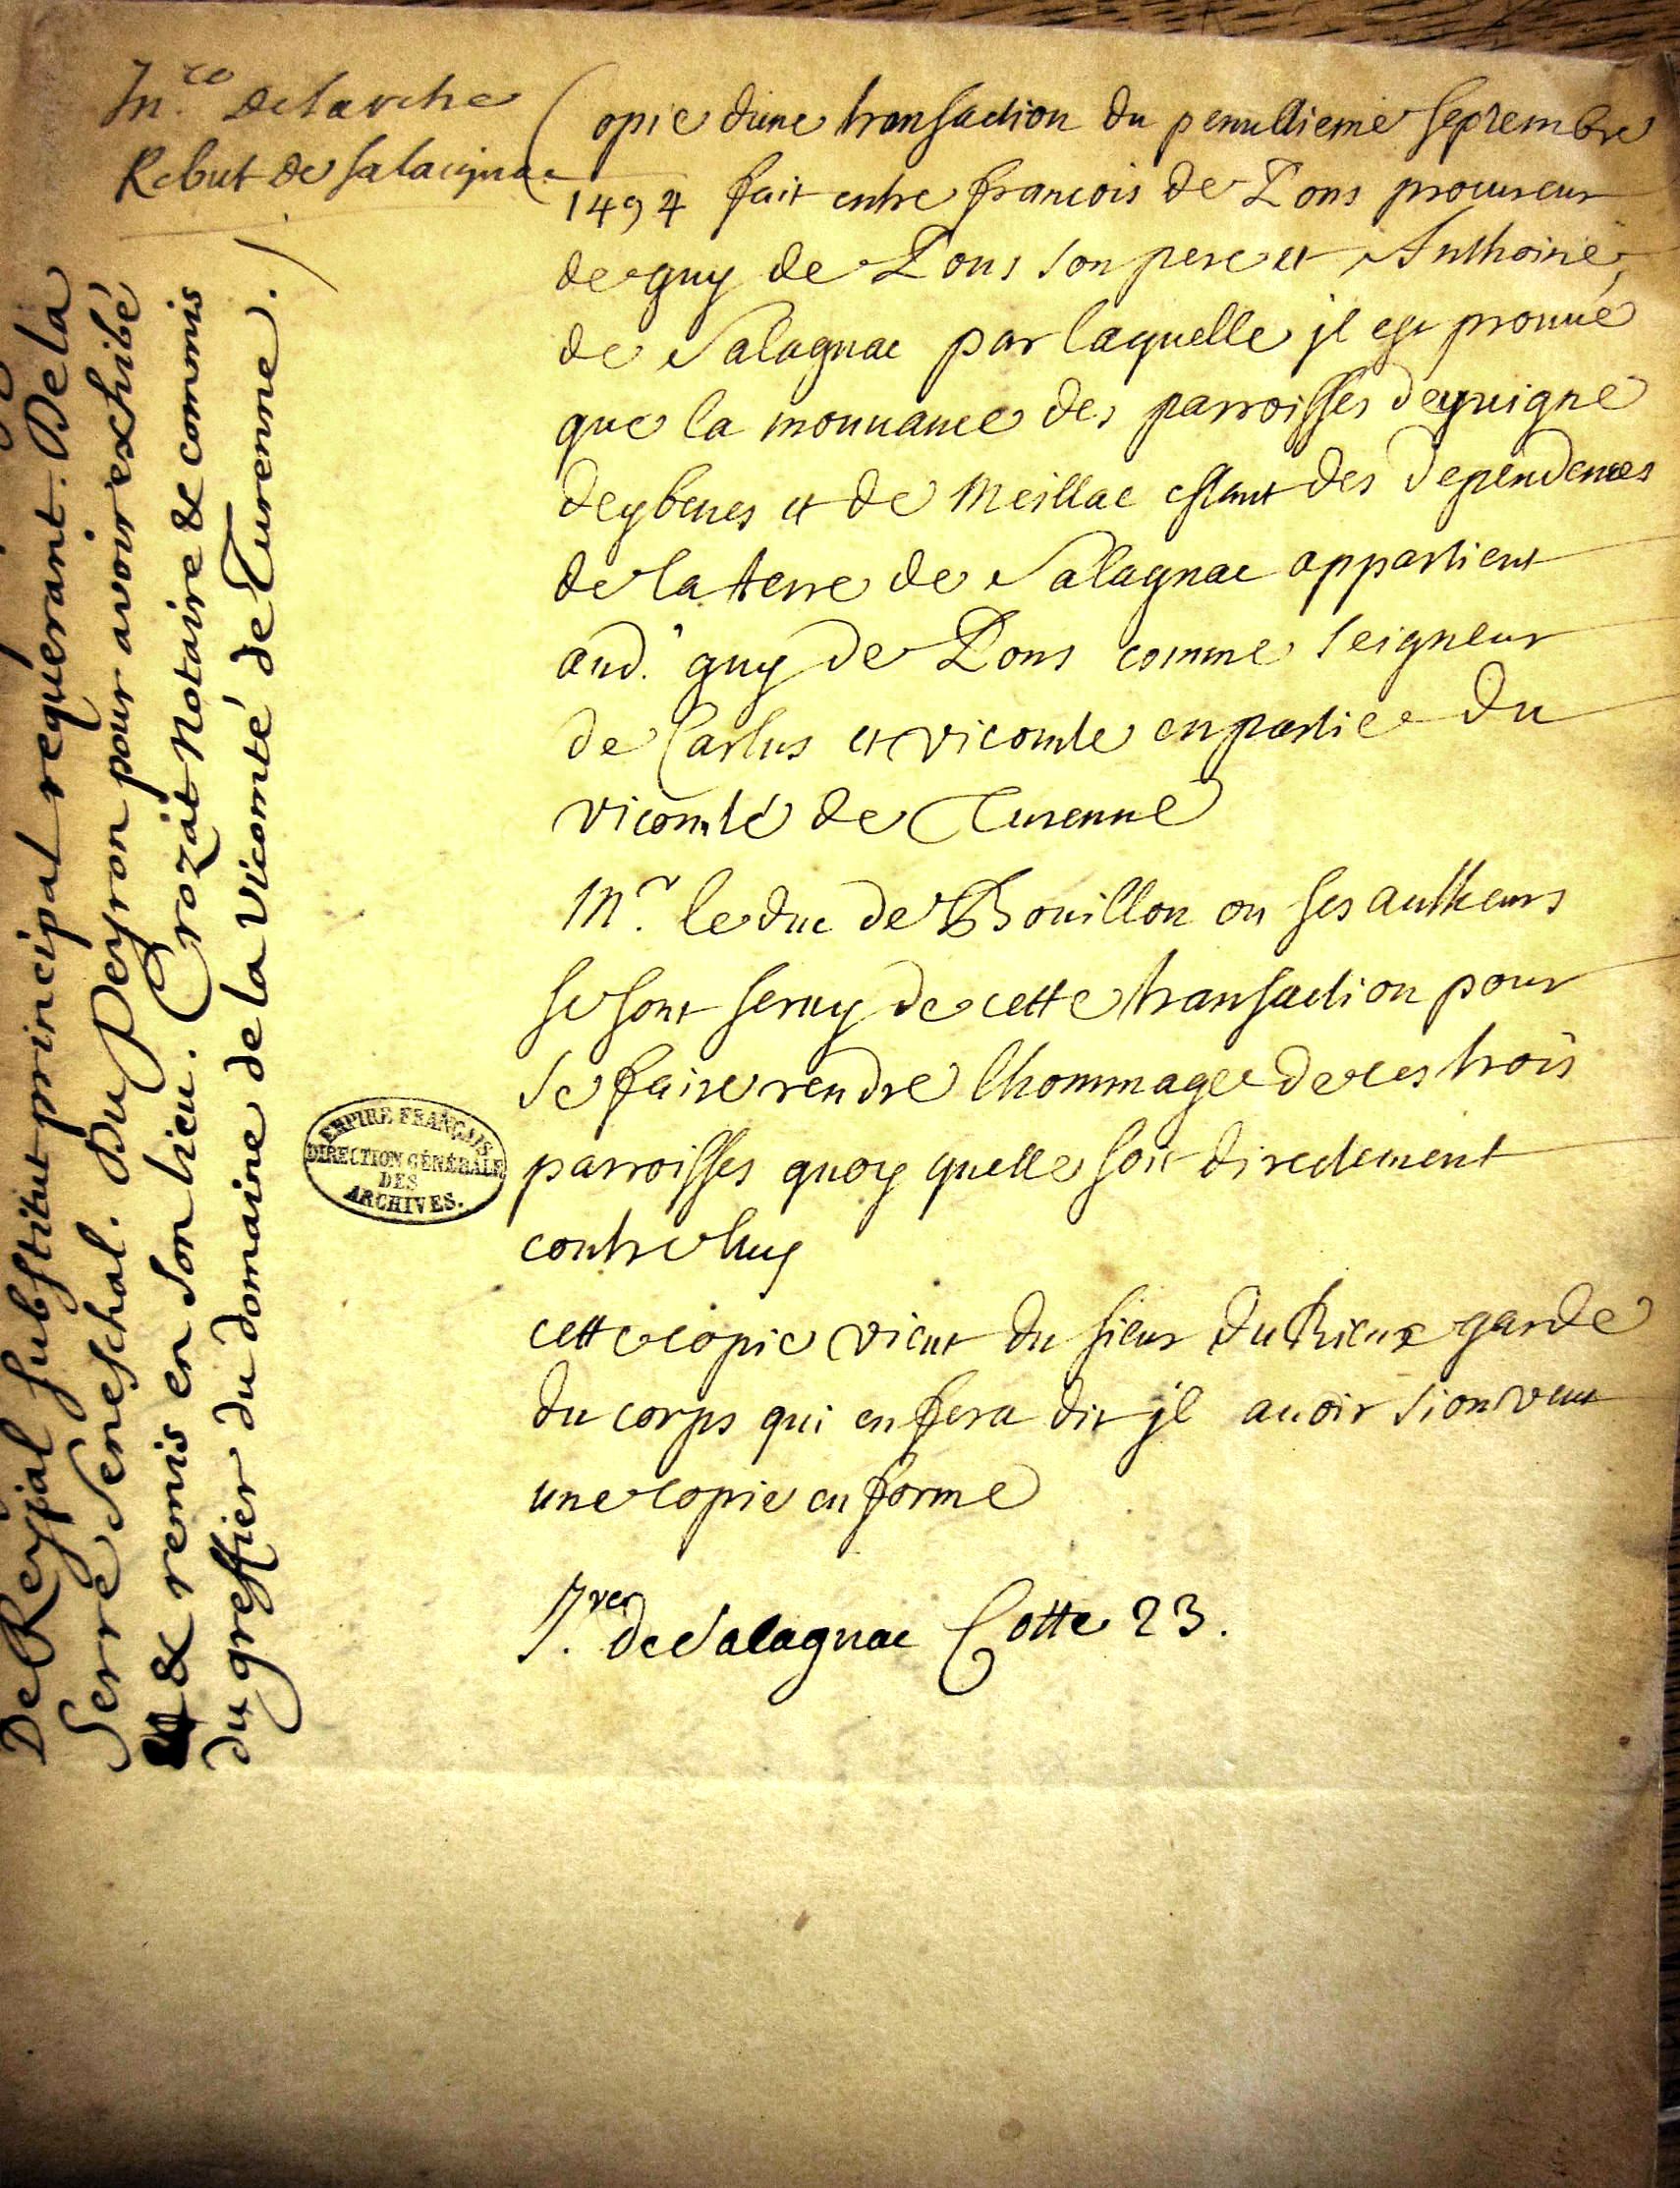 De Reyjal substitut principal requerant. De la
Serre Seneschal. Du Peyron pour avoir exhibé
& remis en son lieu. Crozat Notaire & commis
du greffier du domaine de la Vicomté de Turenne.
Delarche
Rebut de salaignac
Copie dune transaction du penultieme septembre
1494 fait entre francois de Pons procureur
de guy de Pons son pere et Anthoine
de Salagnac par laquelle jl est prouué
que la mouuance des parroisses deyuigne
deybenes et de Meillac estant des dependences
de la terre de Salagnac appartient
aud. guy de Pons comme seigneur
de Carlus et vicomte en partie du
vicomté de Turenne
Mr. le duc de Bouillon ou ses autheurs
se sont seruy de cette transaction pour
se faire rendre lhommage de ces trois
parroisses quoy quelle soit directement
contre luy
EMPIRE FRANÇAIS
DIRECTION GÉNÉRALE
DES
ARCHIVES.
cette copie vient du sieur du Rieux garde
du corps qui en fera dit jl auoir si on veut
une copie en forme
de Salagnac Cotte 23.